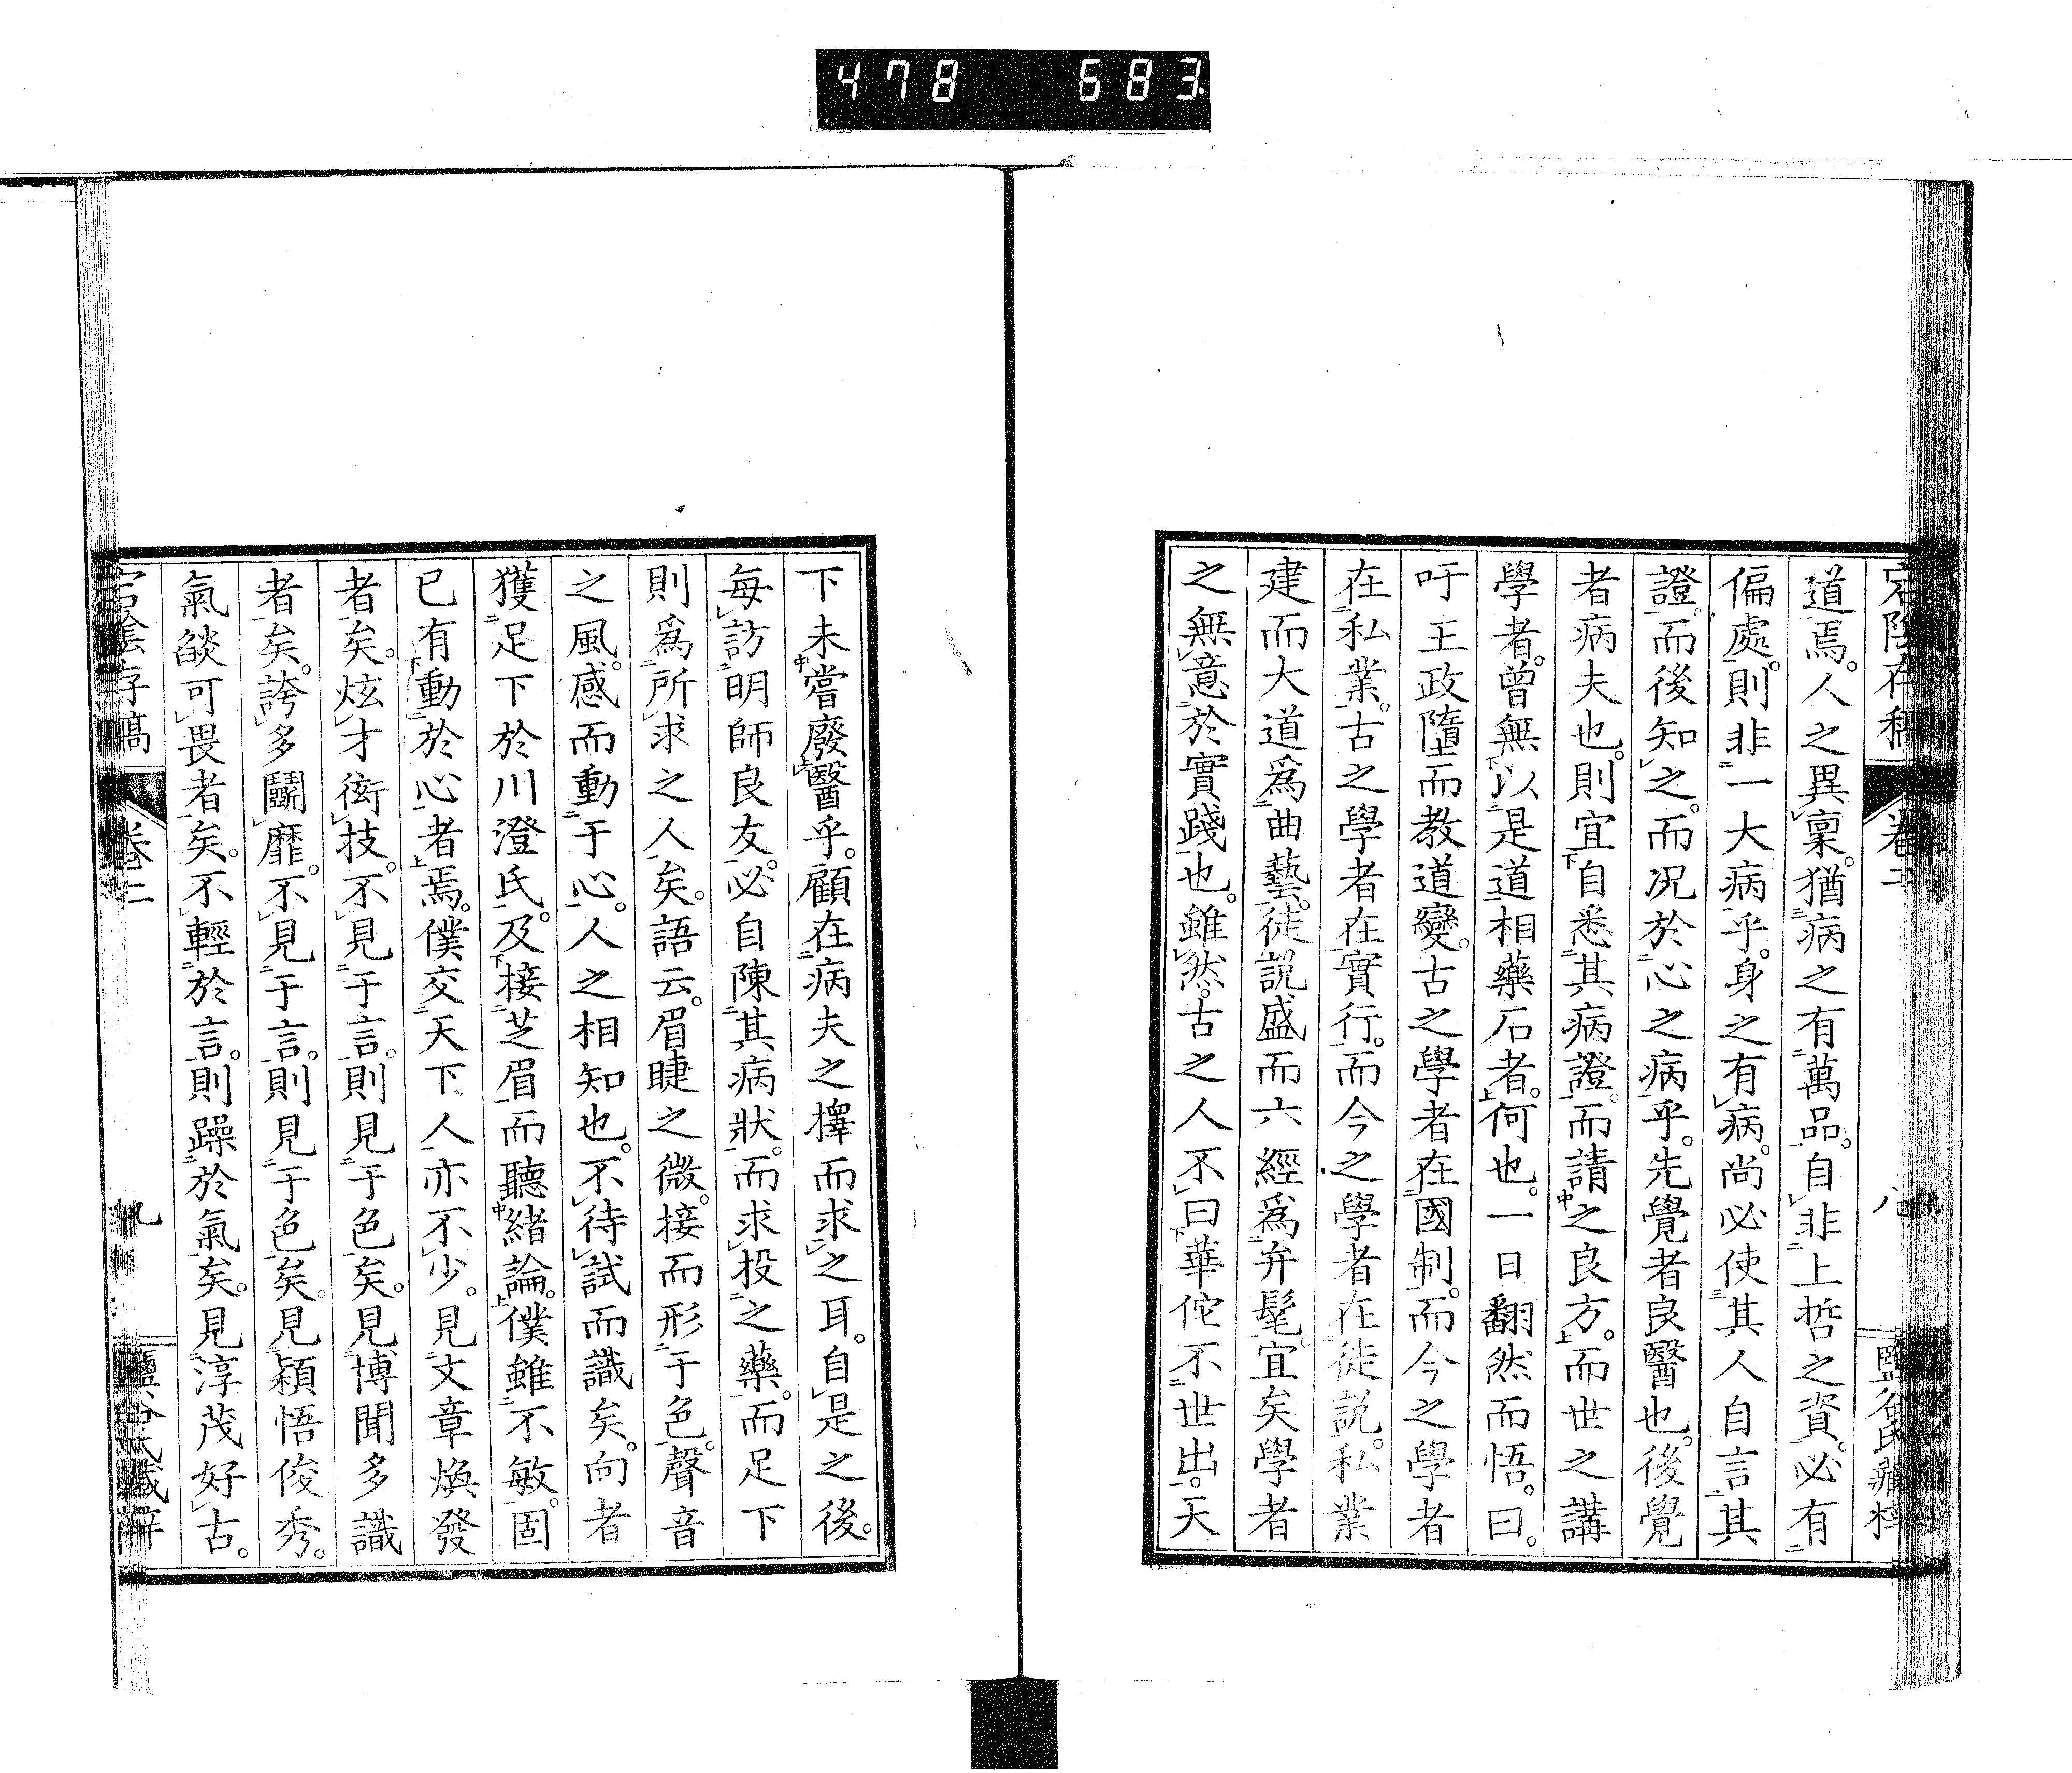 478 683
宕陰存稿 卷二 八 鹽谷氏藏梓
道焉。人之異稟。猶病之有萬品。自非上哲之資。必有
偏處。則非一大病乎。身之有病。尚必使其人自言其
證。而後知之。而況於心之病乎。先覺者良醫也。後覺
者病夫也。則宜自悉其病證。而請之良方。而世之講
學者。曾無以是道相藥石者。何也。一日翻然而悟。曰。
吁王政隳而教道變。古之學者在國制。而今之學者
在私業。古之學者在實行。而今之學者在徒説。私業
建而大道爲曲藝。徒説盛而六經爲弁髦。宜矣學者
之無意於實踐也。雖然。古之人不曰華佗不世出。天
下未嘗廢醫乎。顧在病夫之擇而求之耳。自是之後。
每訪明師良友。必自陳其病狀。而求投之藥。而足下
則爲所求之人矣。語云。眉睫之微。接而形于色。聲音
之風。感而動于心。人之相知也。不待試而識矣。向者
獲足下於川澄氏。及接芝眉而聽緒論。僕雖不敏。固
已有動於心者焉。僕交天下人亦不少。見文章煥發
者矣。炫才衒技。不見于言。則見于色矣。見博聞多識
者矣。誇多鬭靡。不見于言。則見于色矣。見穎悟俊秀。
氣燄可畏者矣。不輕於言。則躁於氣矣。見淳茂好古。
宕陰存稿 卷二 九 鹽谷氏藏梓